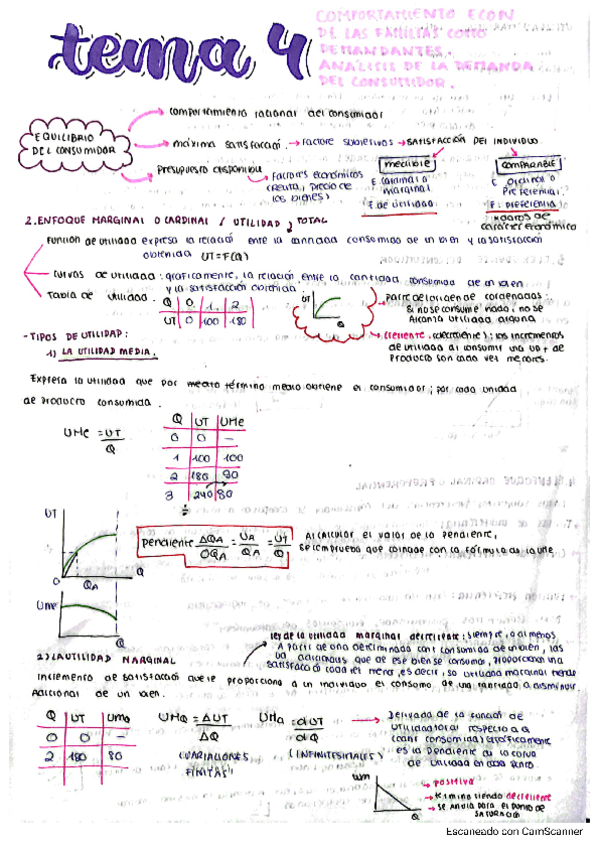 tema 4
COMPORTAMIENTO ECON
DE LAS FAMILIAS COMO
DEMANDANTES.
ANALISIS DE LA DEMANDA
DEL CONSUMIDOR.
EQUILIBRIO
DEL CONSUMIDOR
comportamiento racional del consumidor
máxima satisfacció. → Factore subjetivos → SATISFACCIÓN DEL INDIVIDUO
Presupuesto disponible
Factores económicos
(Renta, precio de
los bienes)
medible
E Cardinal o
marginal
F. de utilidad
COMPARABLE
E Ordinal o
Preferencial
carácter económico
2. ENFOQUE MARGINAL O CARDINAL / UTILIDAD TOTAL
Función de utilidad expresa la relación ente la cantidad consumida de un bien y la satisfacción
obtenida UT=F(Q)
Curvas de utilidad: gráficamente, la relación entre la cantidad consumida de un bien
y la satisfacción obtenida
Tabla de utilidad.
Q 0 1 2
UT 0 100 180
UT
Q
parte del origen de coordenadas.
Si no se consume nada, no se
alcanza utilidad alguna
Creciente (decreciente): los incrementos
de utilidad al consumir una ud + de
producto son cada vez menores.
- TIPOS DE UTILIDAD:
1) LA UTILIDAD MEDIA.
Expresa la utilidad que por medio término medio obtiene el consumidor, por cada unidad
de producto consumida.
UMe = UT
Q
Q UT UMe
0 0 -
1 100 100
2 180 90
3 240 80
UT
O QA Q
pendiente ΔQA = UA = UT
OQA QA Q
Al calcular el valor de la pendiente,
se comprueba que coincide con la fórmula de la Ume
Ume
Q
ley de la utilidad marginal decreciente: siempre, o al menos
A partir de una determinada cant consumida de un bien, las
ud adicionales que de ese bien se consumo, proporcionan una
satisfacción cada vez menor, es decir, su utilidad marginal tiende
a disminuir.
2) LA UTILIDAD MARGINAL
Incremento de satisfacció que le proporciona a un individuo el consumo de una cantidad
adicional de un bien.
Q UT Uma
0 0 -
2 180 80
UMa = ΔUT
ΔQ
(VARIACIONES
FINITAS)
UMa = dUT
dQ
(INFINITESIMALES)
Derivada de la función de
utilidad total respecto a a
(cant consumida) gráficamente
es la pendiente de la curva
de utilidad en cada punto
Um
Q
positiva
termina siendo decreciente
se anula para el punto de
saturació
Escaneado con CamScanner